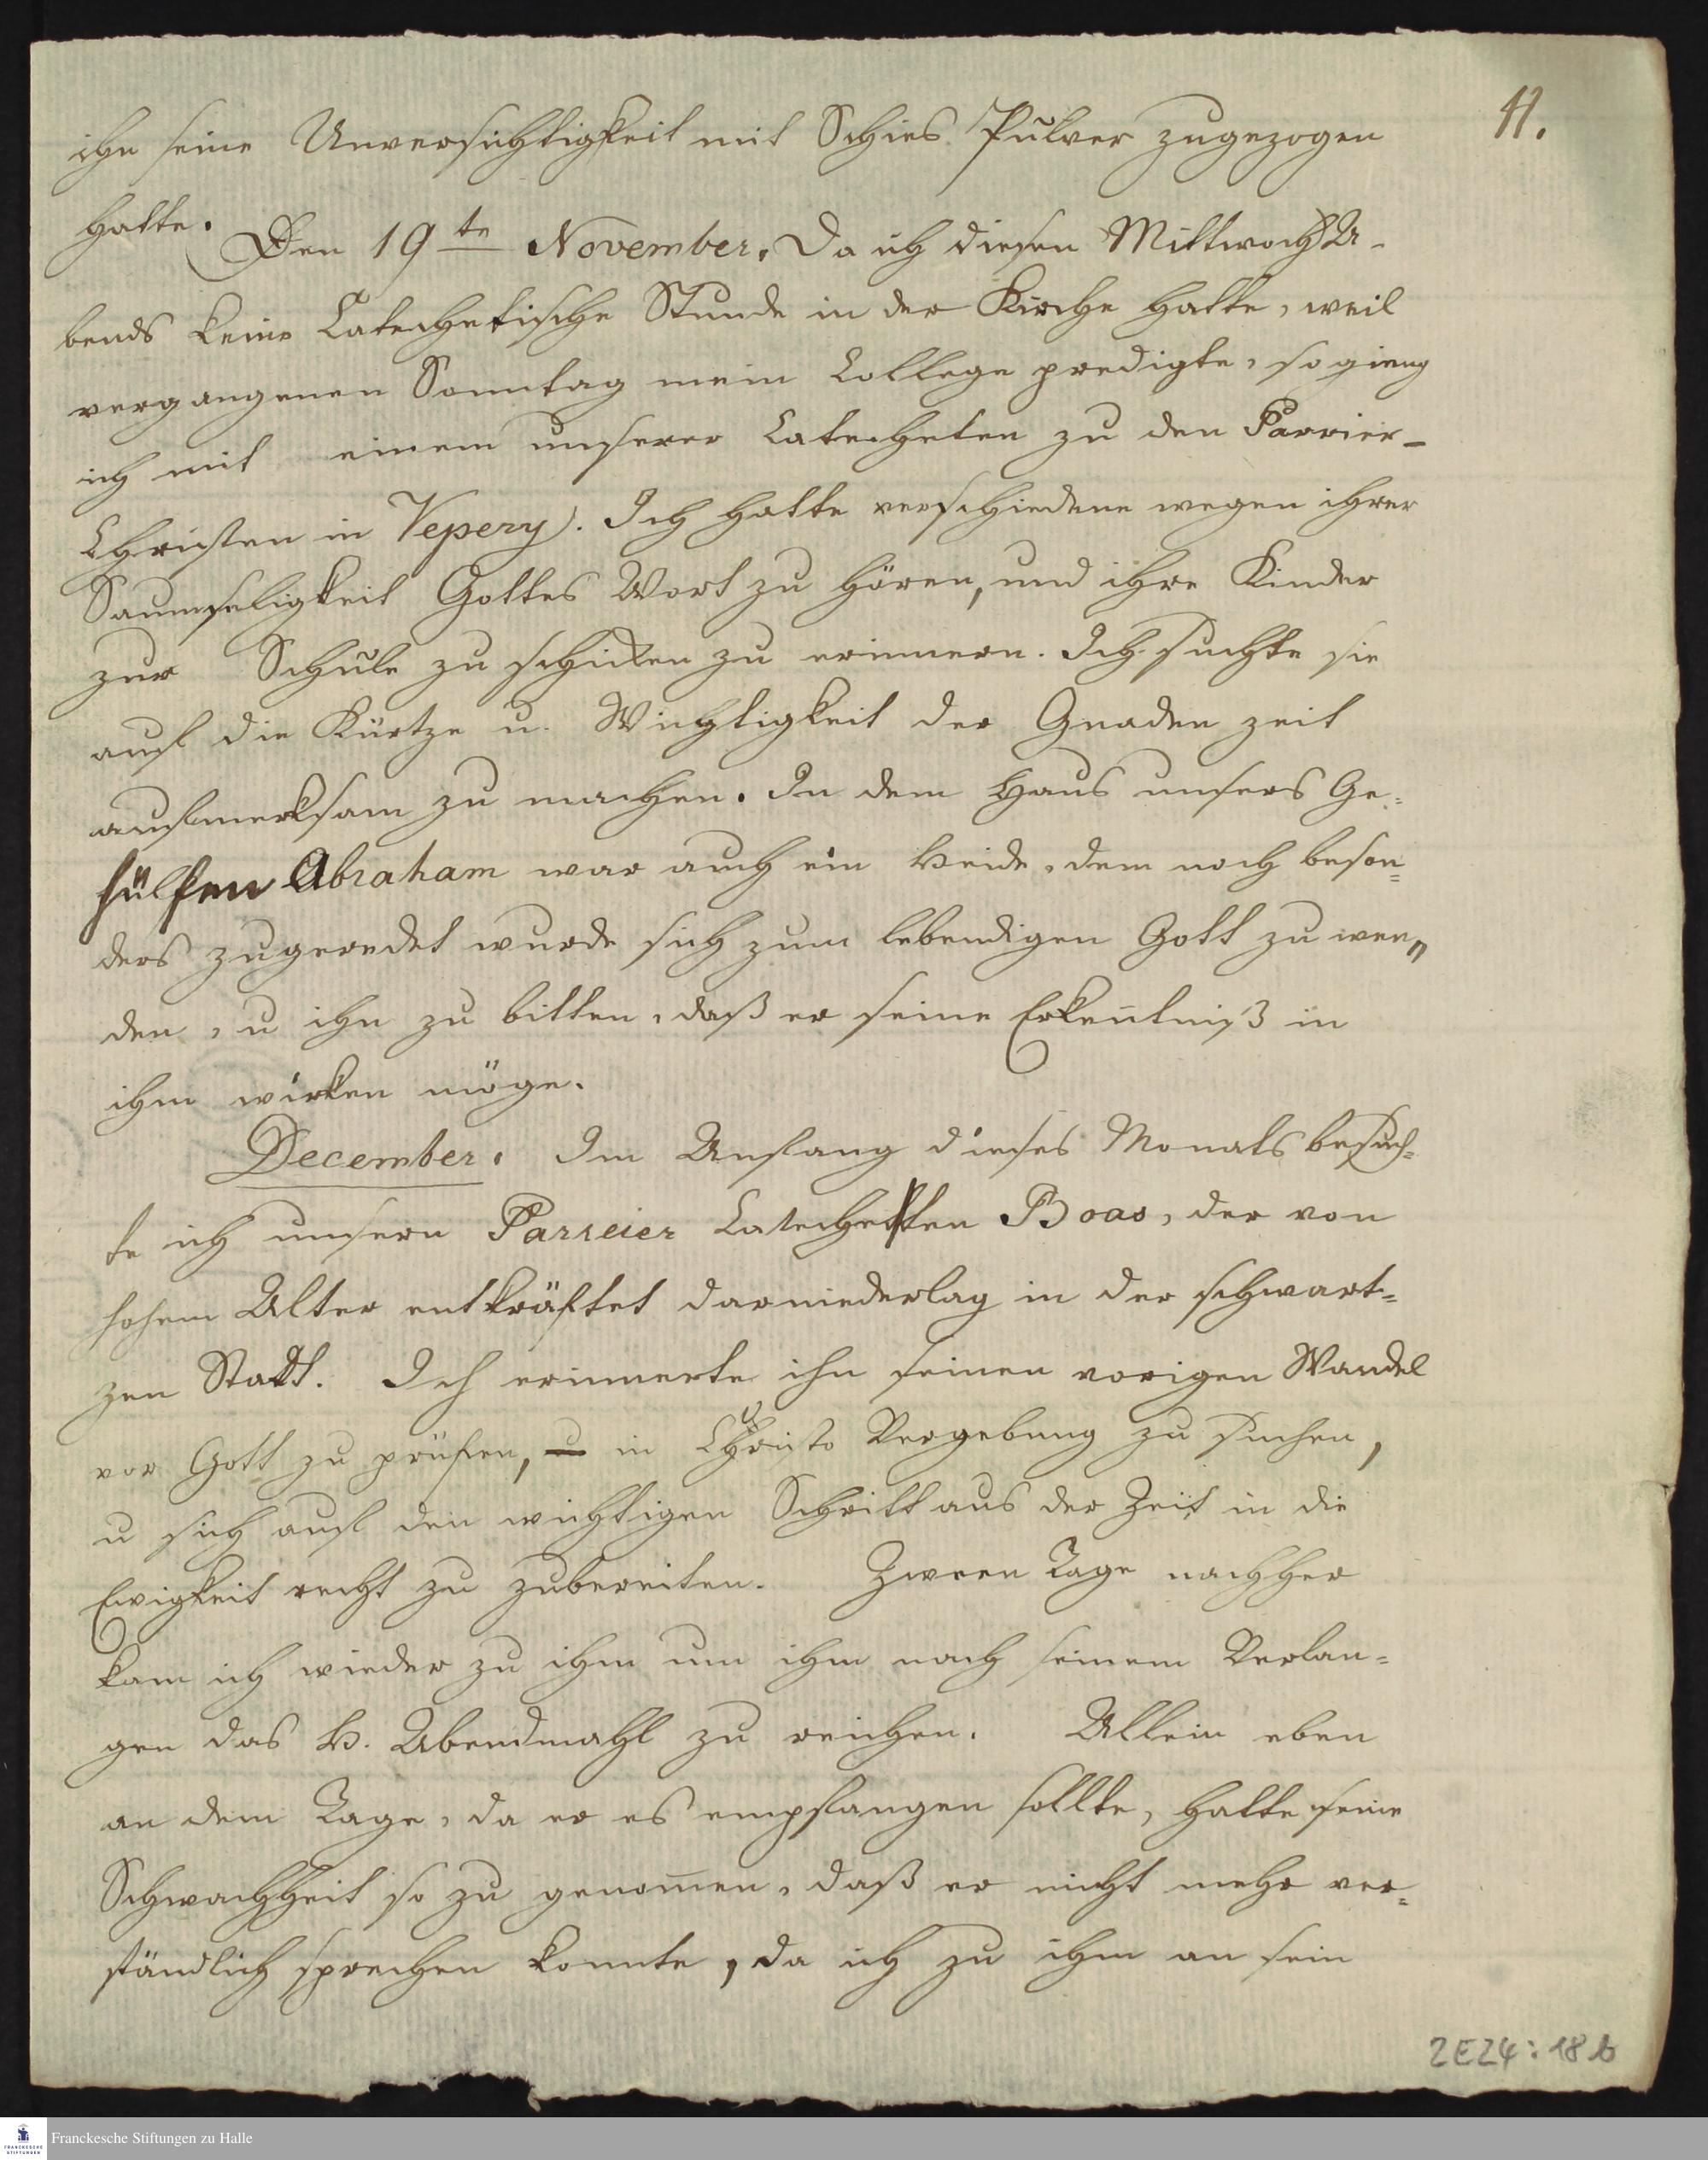 11.
ihn seine Unversichtigkeit mit Schies Pulver zugezogen
hatte.
Den 19te November. Da ich diesen Mittwoch A-
bends keine Catechetische Stunde in der Kirche hatte, weil
vergangenen Sonntag mein College predigte, so gieng
ich mit einem unserer Catecheten zu den Parrier-
Christen in Vepery. Ich hatte verschiedene wegen ihrer
Saumseligkeit Gottes Wort zu hören, und ihre Kinder
zur Schule zu schicken zu erinnern. Ich suchte sie
auf die Kürtze u. Wichtigkeit der Gnaden zeit
aufmerksam zu machen. In dem Haus unsers Ge=
hülfen Abraham war auch ein Heide, dem noch beson=
ders zugeredet wurde sich zum lebendigen Gott zu wen=
den, u ihn zu bitten, daß er seine Erken̄tniß in
ihm wirken möge.
December. Im Anfang dieses Monats besuch=
te ich unsern Parreier Catecheten Boas, der von
hohem Alter entkräftet darniederlag in der schwart=
zen Stadt. Ich erinnerte ihn seinen vorigen Wandel
vor Gott zu prüfen, u in Christo Vergebung zu suchen,
u sich auf den wichtigen Schritt aus der Zeit in die
Ewigkeit recht zu zubereiten. Zween Tage nachher
kam ich wieder zu ihm um ihm nach seinem Verlan=
gen das H. Abendmahl zu reichen. Allein eben
an dem Tage, da er es empfangen sollte, hatte seine
Schwachheit so zu genom̄en, daß er nicht mehr ver=
ständlich sprechen konnte, da ich zu ihm an sein
2E24:18b
FRANCKESCHE STIFTUNGEN
Franckesche Stiftungen zu Halle